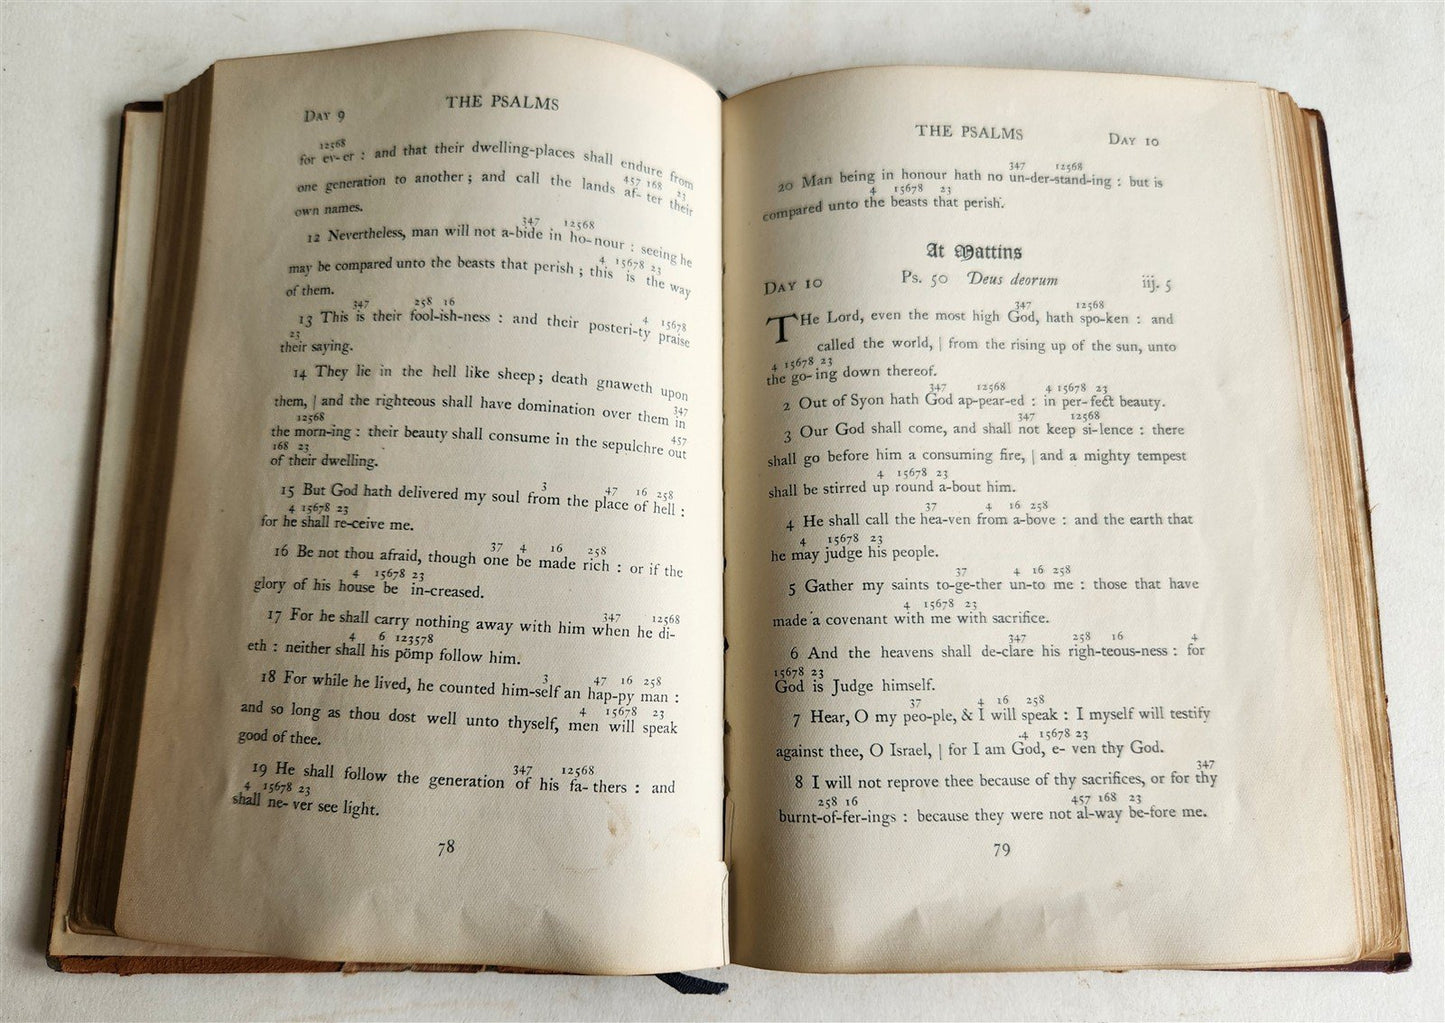 Day 9
THE PSALMS
12568
for ev-er : and that their dwelling-places shall endure from
one generation to another ; and call the lands af- ter their
457 168 23
own names.
347 12568
12 Nevertheless, man will not a-bide in ho-nour : seeing he
4 15678 23
may be compared unto the beasts that perish ; this is the way
of them.
347 258 16
13 This is their fool-ish-ness : and their posteri-ty praise
4 15678
23
their saying.
14 They lie in the hell like sheep; death gnaweth upon
them, | and the righteous shall have domination over them in
347
12568
the morn-ing : their beauty shall consume in the sepulchre out
457
168 23
of their dwelling.
3 47 16 258
15 But God hath delivered my soul from the place of hell :
4 15678 23
for he shall re-ceive me.
37 4 16 258
16 Be not thou afraid, though one be made rich : or if the
4 15678 23
glory of his house be in-creased.
347 12568
17 For he shall carry nothing away with him when he di-
4 6 123578
eth : neither shall his pömp follow him.
3 47 16 258
18 For while he lived, he counted him-self an hap-py man :
4 15678 23
and so long as thou dost well unto thyself, men will speak
good of thee.
347 12568
19 He shall follow the generation of his fa-thers : and
4 15678 23
shall ne-ver see light.
78
THE PSALMS
Day 10
347 12568
20 Man being in honour hath no un-der-stand-ing : but is
4 15678 23
compared unto the beasts that perish.
At Mattins
Day 10 Ps. 50 Deus deorum iij. 5
347 12568
THe Lord, even the most high God, hath spo-ken : and
called the world, | from the rising up of the sun, unto
4 15678 23
the go-ing down thereof.
347 12568 4 15678 23
2 Out of Syon hath God ap-pear-ed : in per-fect beauty.
347 12568
3 Our God shall come, and shall not keep si-lence : there
shall go before him a consuming fire, | and a mighty tempest
4 15678 23
shall be stirred up round a-bout him.
37 4 16 258
4 He shall call the hea-ven from a-bove : and the earth that
4 15678 23
he may judge his people.
37 4 16 258
5 Gather my saints to-ge-ther un-to me : those that have
4 15678 23
made a covenant with me with sacrifice.
347 258 16 4
6 And the heavens shall de-clare his righ-teous-ness : for
15678 23
God is Judge himself.
37 4 16 258
7 Hear, O my peo-ple, & I will speak : I myself will testify
4 15678 23
against thee, O Israel, | for I am God, e- ven thy God.
347
8 I will not reprove thee because of thy sacrifices, or for thy
258 16 457 168 23
burnt-of-fer-ings : because they were not al-way be-fore me.
79